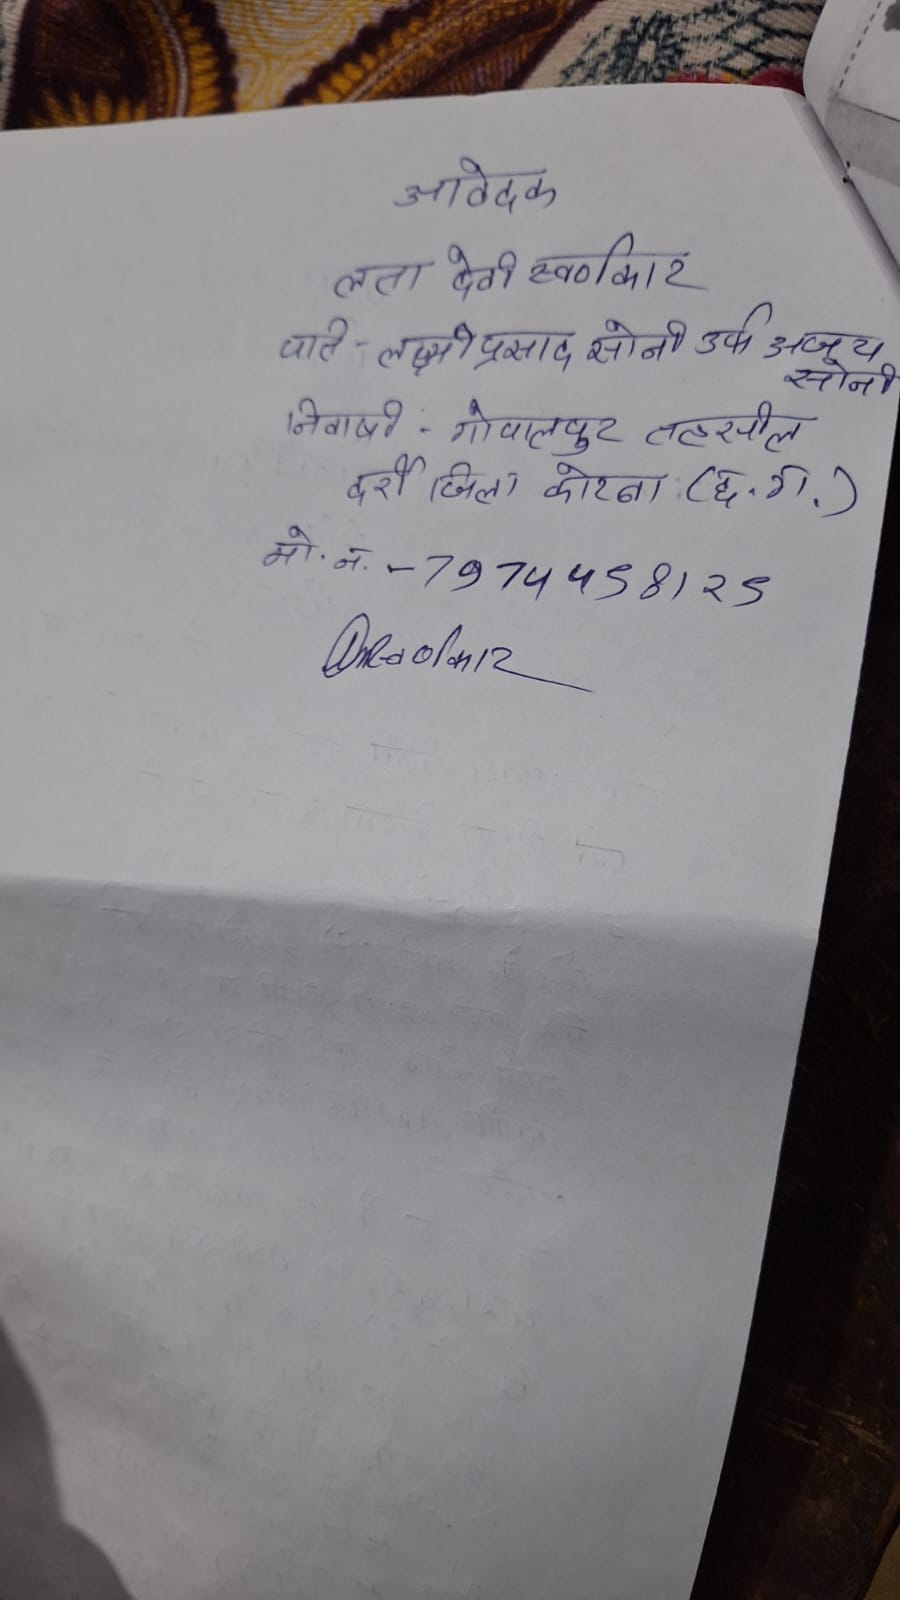 आवेदक
लता देवी स्वर्णकार
पति - लक्ष्मी प्रसाद सोनी उर्फ अजय
सोनी
निवासी - गोपालपुर तहसील
दर्री जिला कोरबा (छ.ग.)
मो. न. - 7974458125
स्वर्णकार